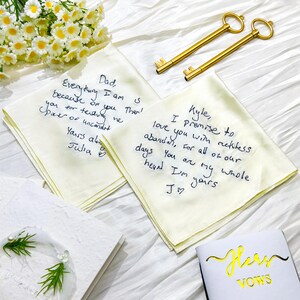 Dad,
Everything I am is
because of you. Thank
you for teaching me
Yours
Julia
Kyle,
I promise to
love you with reckless
abandon, for all of our
days. You are my whole
heart. I'm yours
J ♡
Hers
VOWS